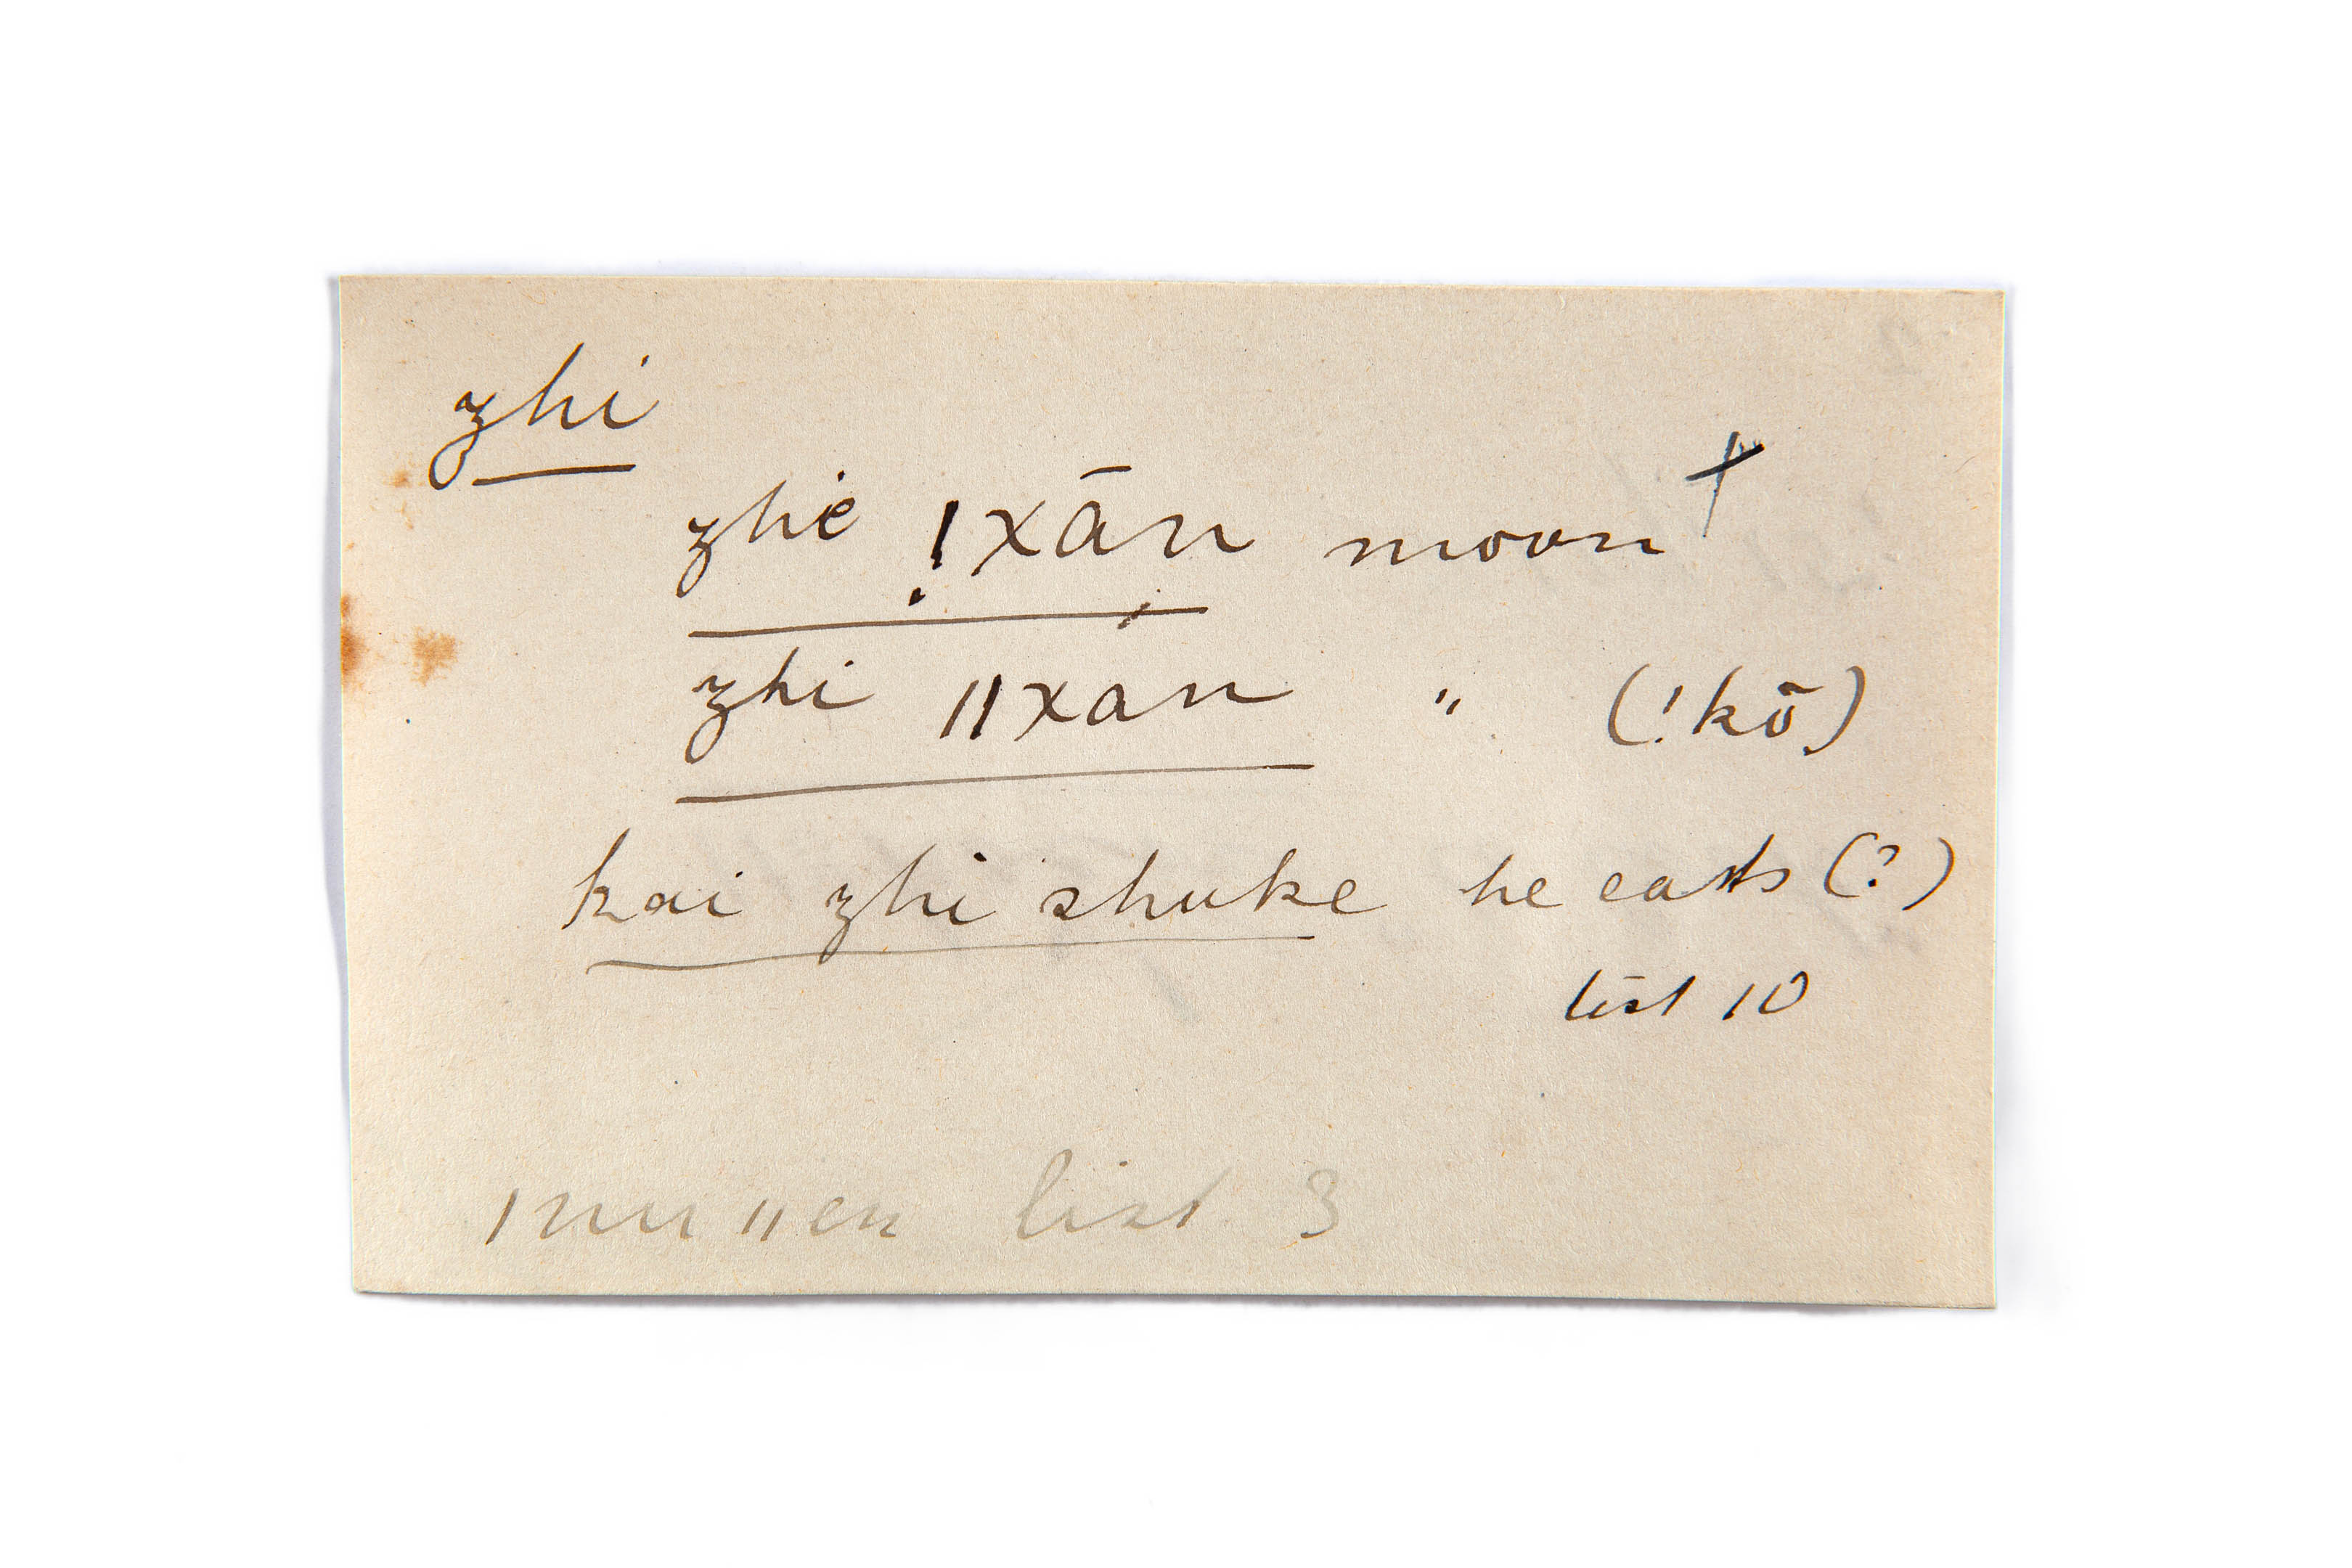 zhi
zhe !xān moon +
zhi ǁxan " (!kō)
kai zhi shuke he eats (?)
list 10
ǀnu ǁen list 3